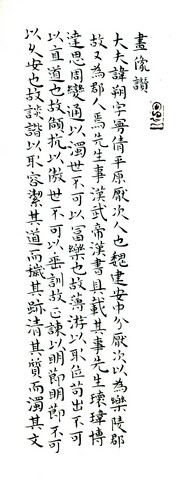 畫像讚
大夫諱朔字曼倩平原厭次人也魏建安中分厭次以為樂陵郡
故又為郡人焉先生事漢武帝漢書具載其事先生瓌瑋博
達思周變通以為濁世不可以富樂也故薄游以取位苟出不可
以直道也故頡抗以傲世傲世不可以垂訓故正諫以明節明節不可
以久安也故談諧以取容潔其道而穢其跡清其質而濁其文